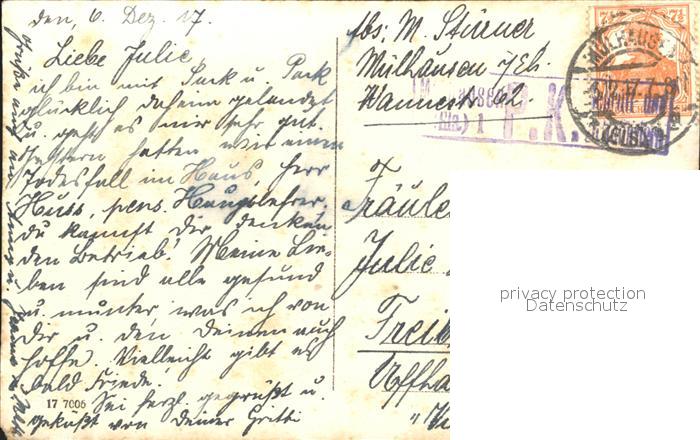 den, 6. Dez. 17.
Liebe Julie
ich bin mit Sack u. Pack
glücklich daheim gelandet
u. geht es mir sehr gut.
Gestern hatten wir einen
Todesfall im Haus, Herr
Huss, pens. Hauptlehrer,
du kannst dir denken
den Betrieb! Meine Lie-
ben sind alle gesund
u. munter, was ich von
Dir u. den Deinen auch
hoffe. Vielleicht gibt es
bald Friede.
Sei herzl. gegrüßt u.
geküßt von Deiner
17 7006
Abs: M. Stürner
Mülhausen i/Els.
Wannerstr. 62.
MÜLHAUSEN
7½ 7½
P.K.
Fräule
Julie
Frei
Uffha
privacy protection
Datenschutz